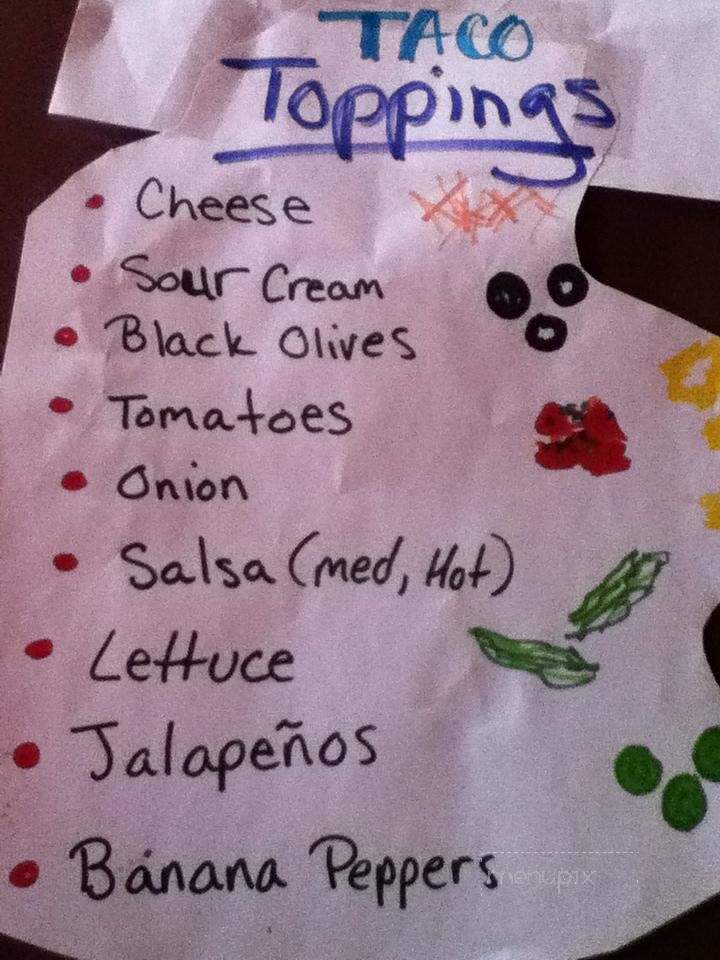 TACO
Toppings
• Cheese
• Sour Cream
• Black Olives
• Tomatoes
• Onion
• Salsa (med, Hot)
• Lettuce
• Jalapeños
• Banana Peppers
menupix